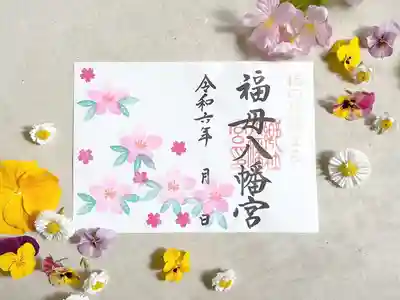 福母八幡宮
令和六年 月 日